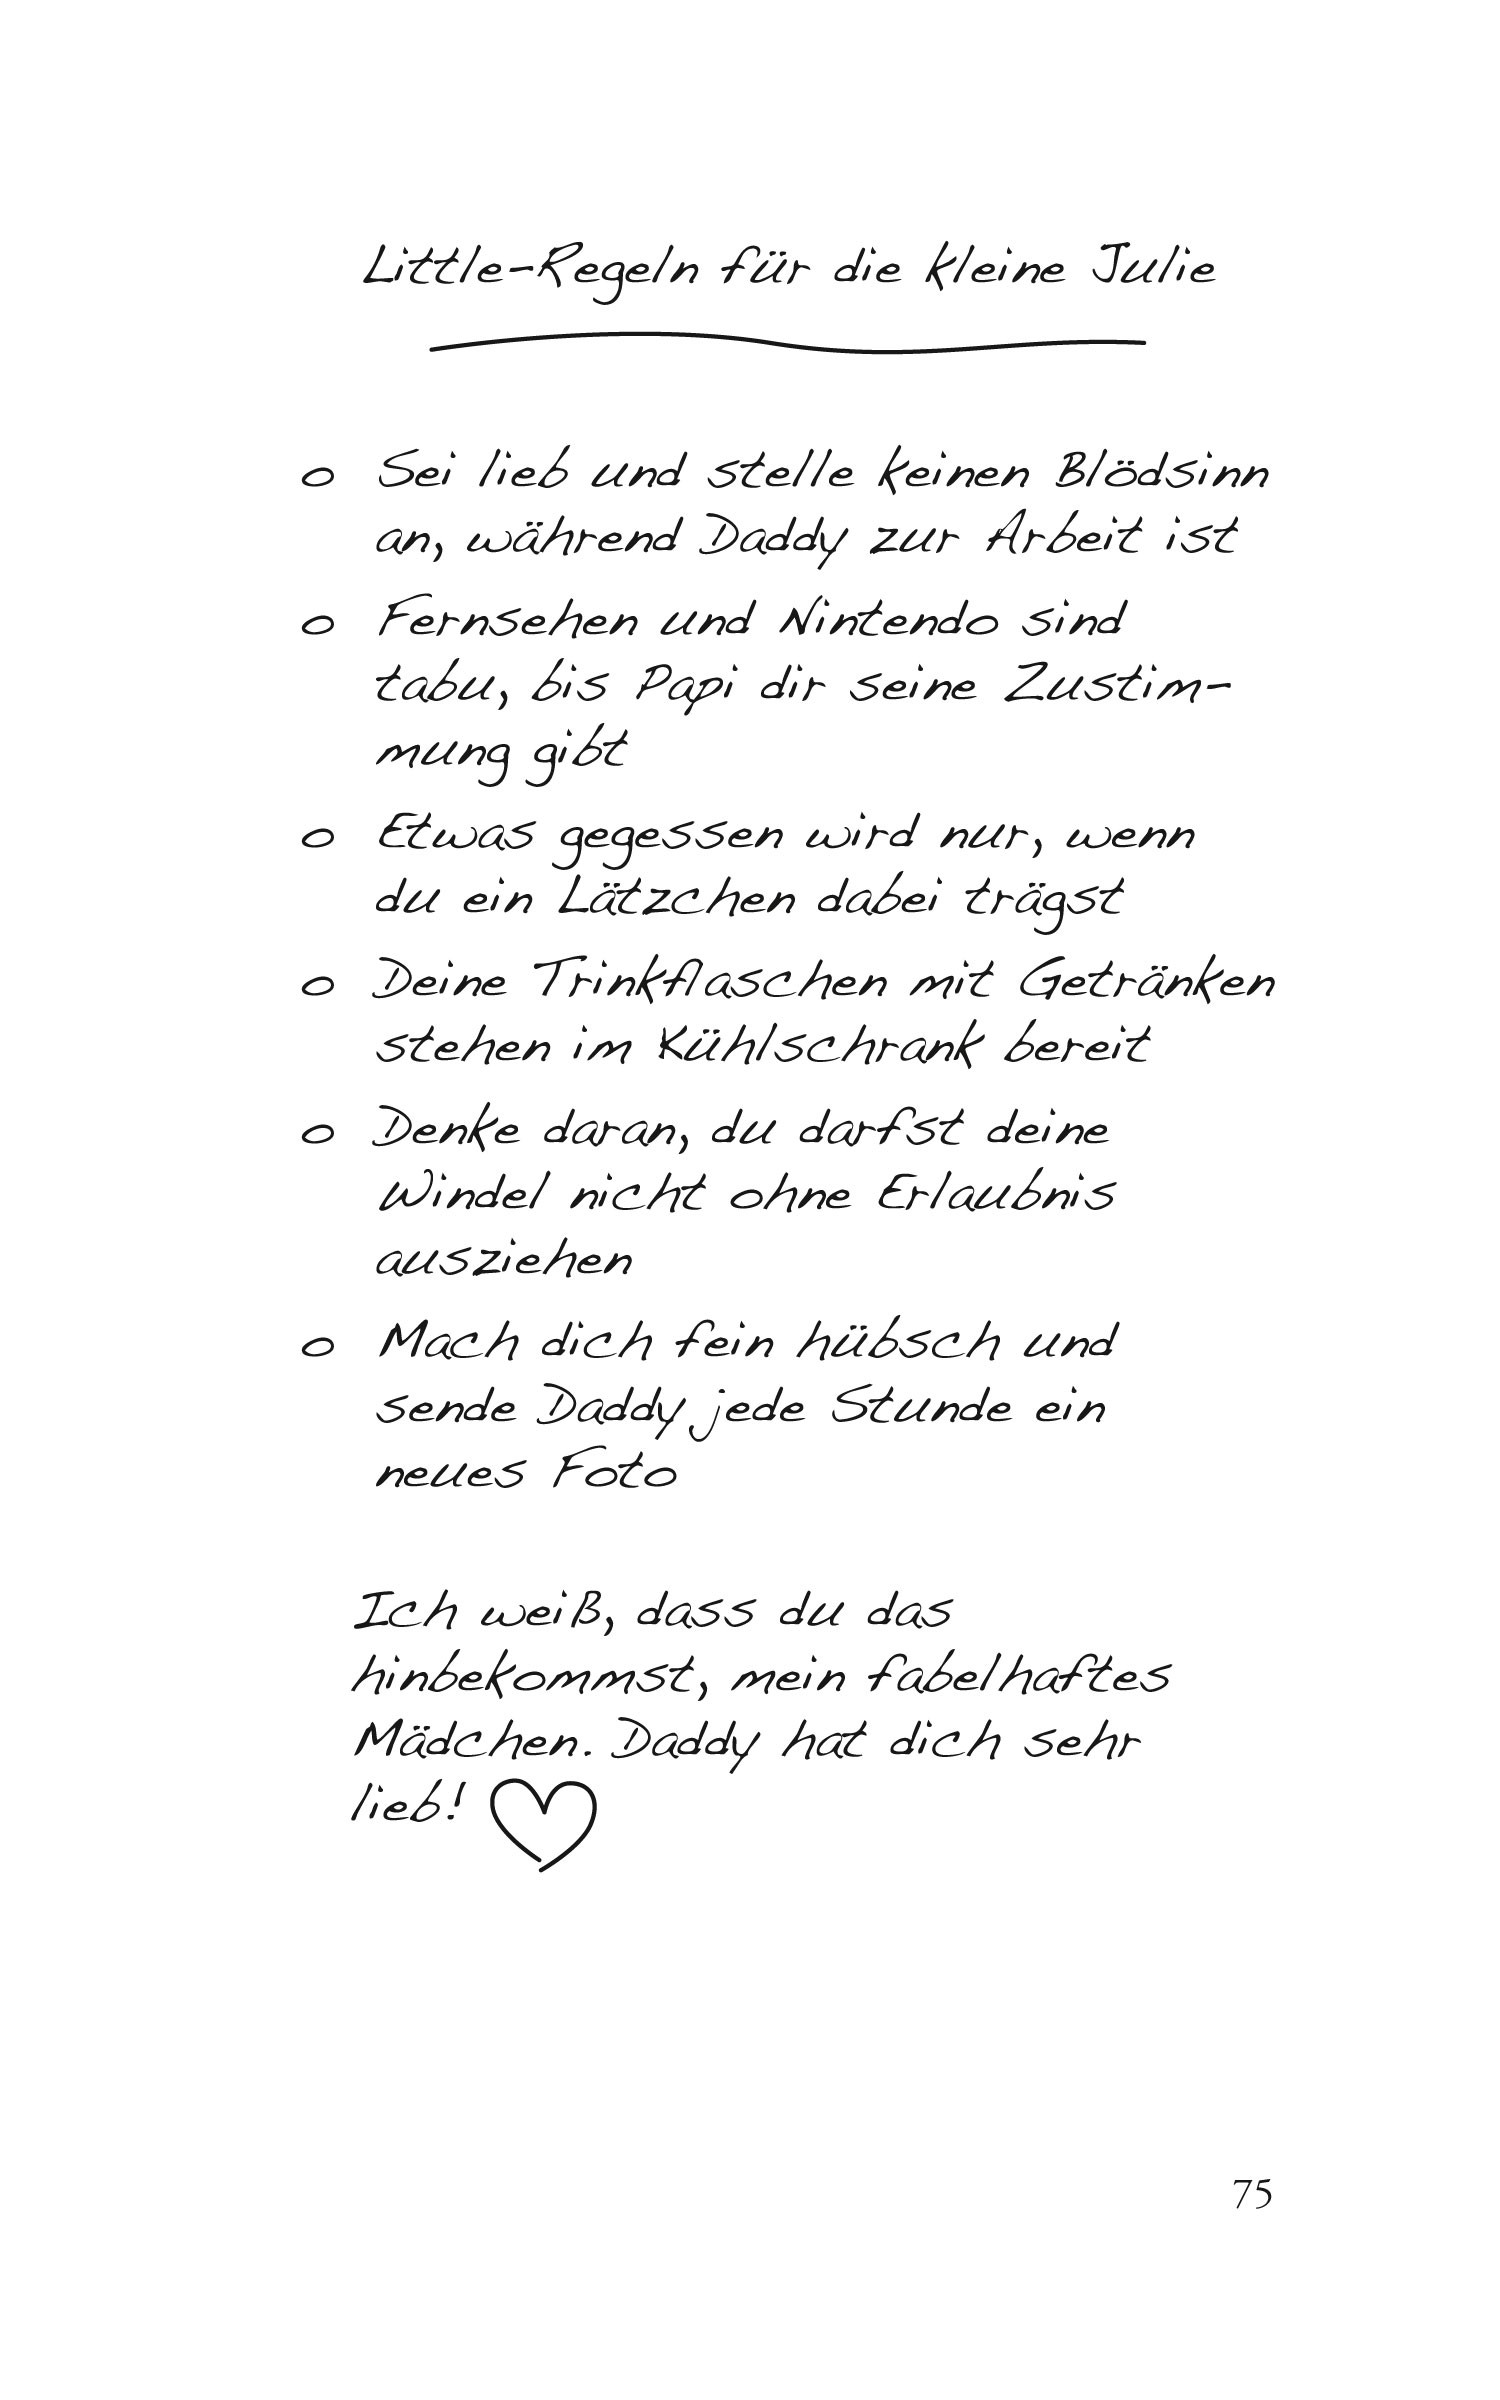 Little-Regeln für die kleine Julie
o Sei lieb und stelle keinen Blödsinn
an, während Daddy zur Arbeit ist
o Fernsehen und Nintendo sind
tabu, bis Papi dir seine Zustim-
mung gibt
o Etwas gegessen wird nur, wenn
du ein Lätzchen dabei trägst
o Deine Trinkflaschen mit Getränken
stehen im Kühlschrank bereit
o Denke daran, du darfst deine
Windel nicht ohne Erlaubnis
ausziehen
o Mach dich fein hübsch und
sende Daddy jede Stunde ein
neues Foto
Ich weiß, dass du das
hinbekommst, mein fabelhaftes
Mädchen. Daddy hat dich sehr
lieb!
75